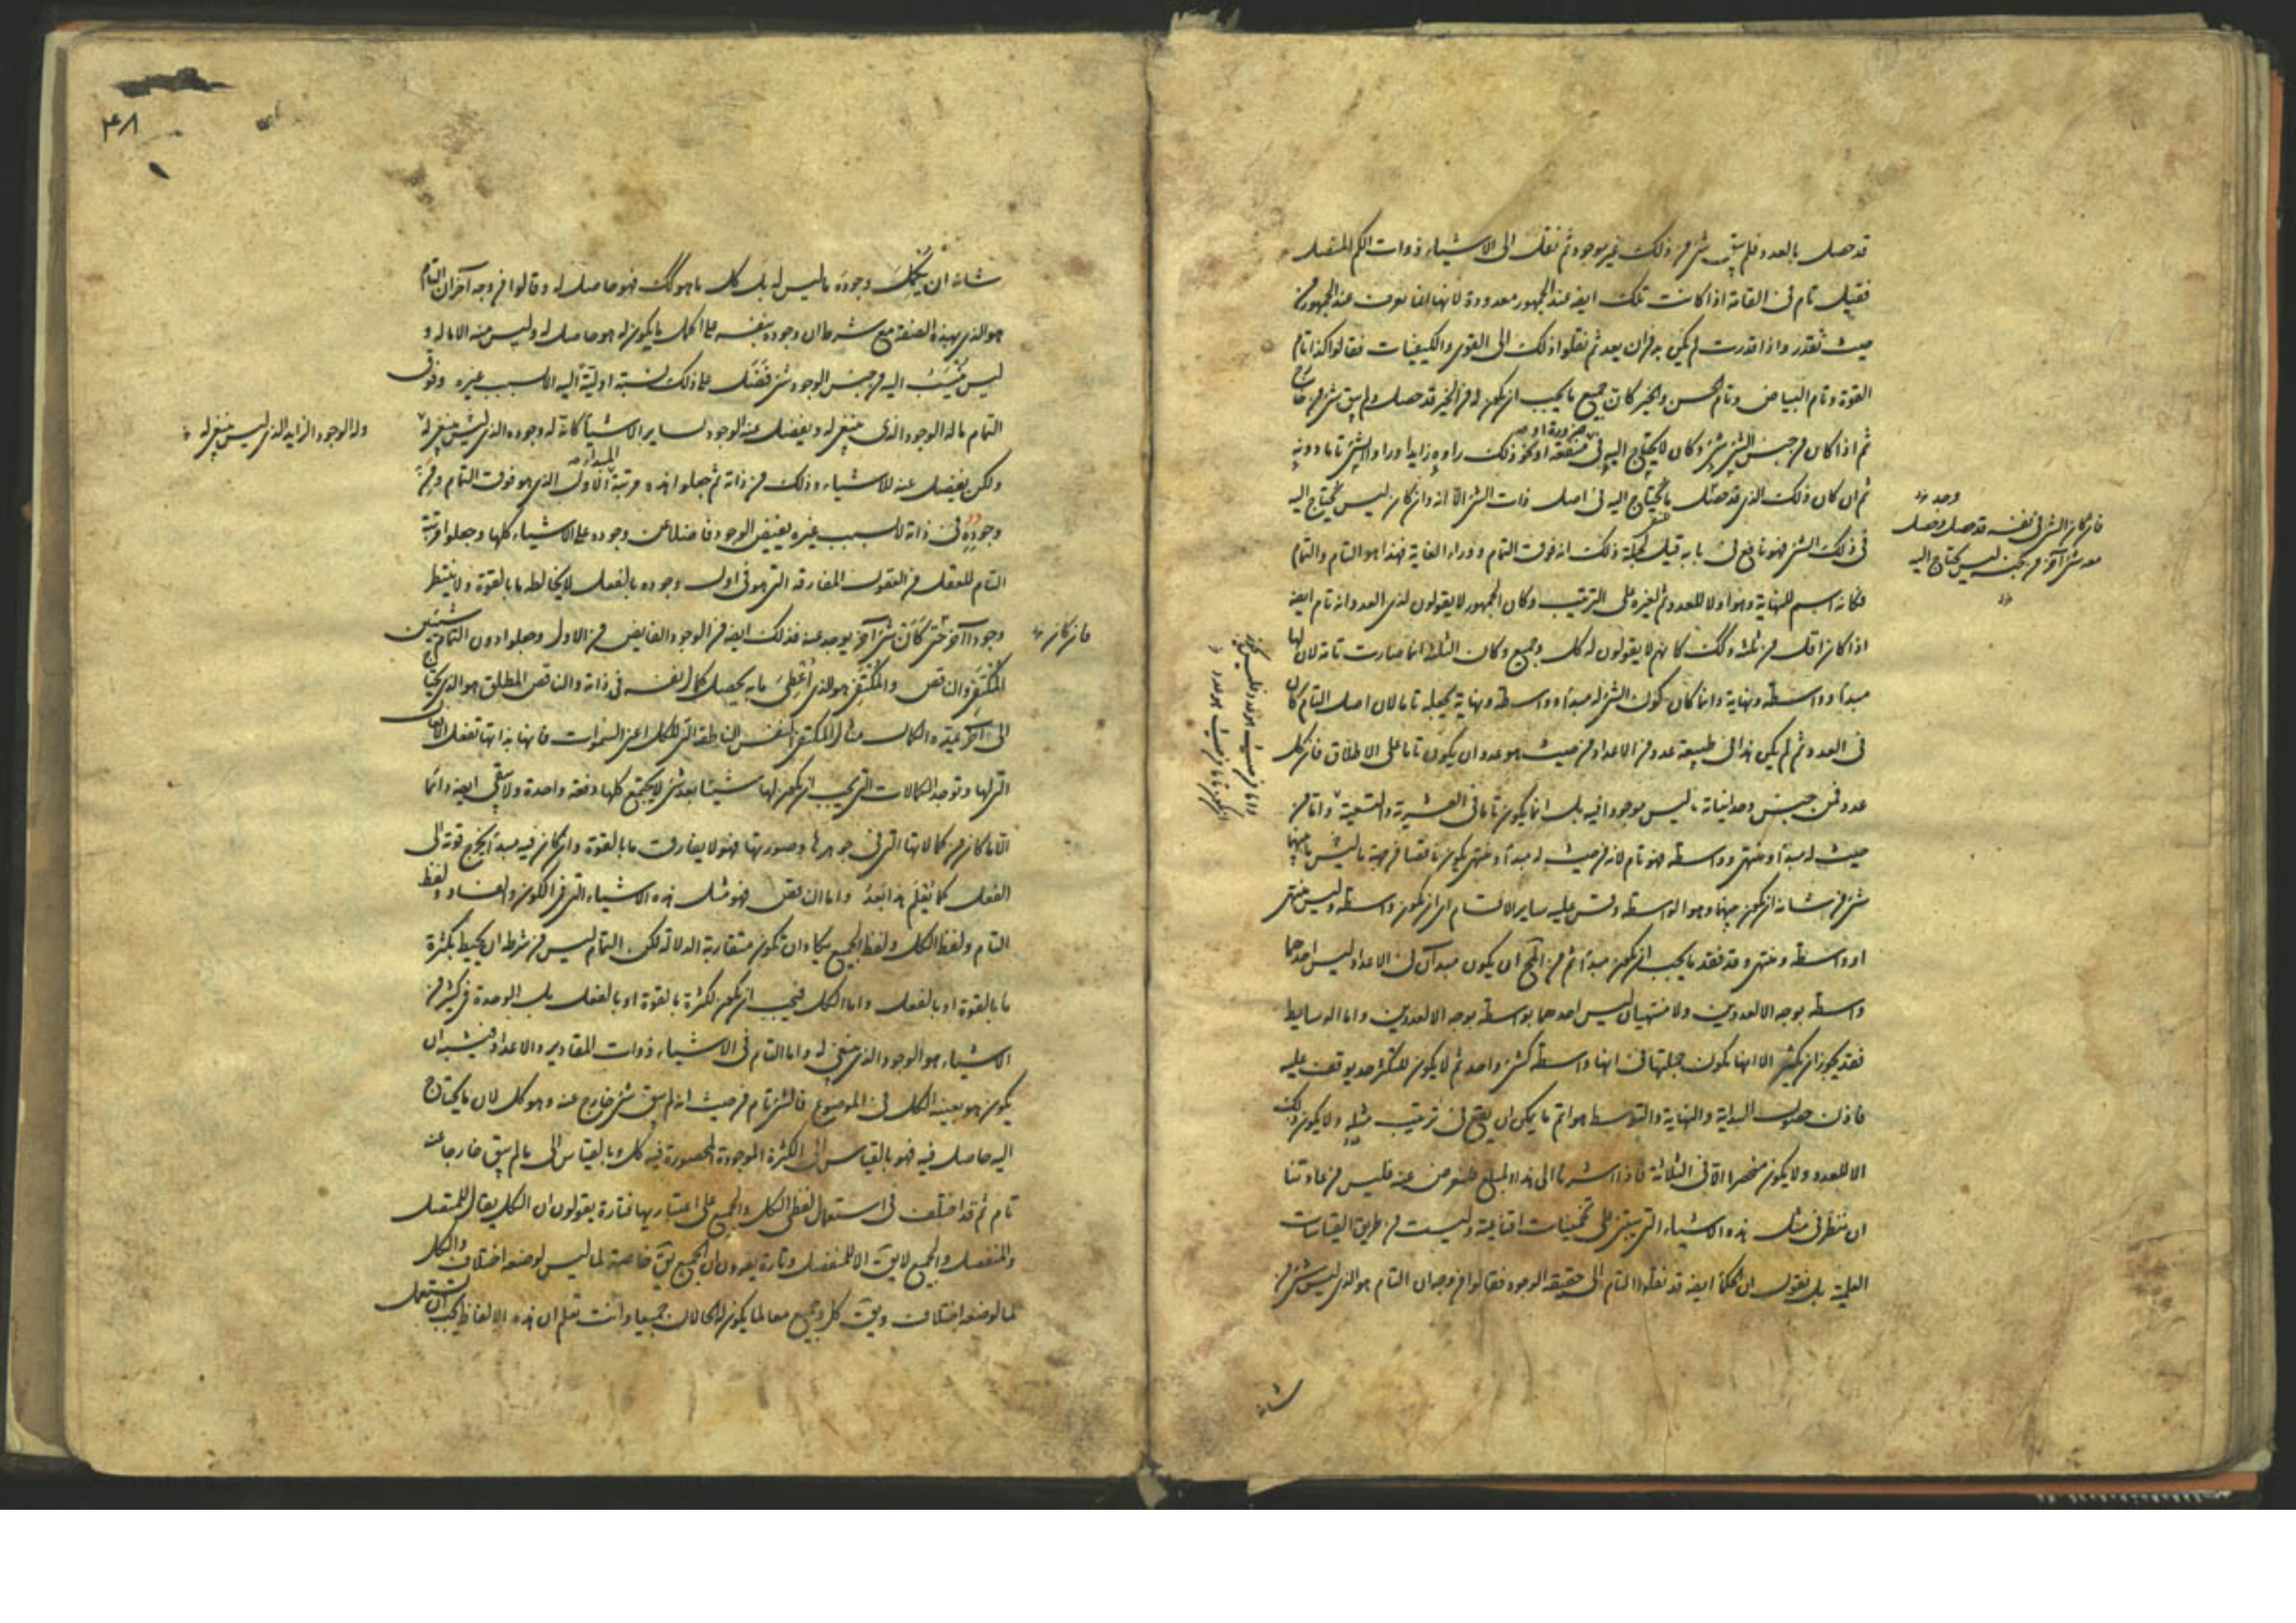 قد حصل بالعدد فلم يبق شئ من ذلك غير موجود ثم نقل الى الاشياء ذوات الكم المتصل
فقيل تام فى القامة اذا كانت تلك ايضا عند الجمهور معدودة لانها انما تعرف عند الجمهور من
حيث تقدر واذا قدرت لم يكن بد من ان يعد ثم نقلوا ذلك الى القوى والكيفيات فقالوا كذا تام
القوة وتام البياض وتام الحسن والخير كان جميع ما يجب ان يكون له من الخير قد حصل ولم يبق شئ من خارج
ثم اذا كان من جنس الشئ شئ وكان لا يحتاج اليه فى ضرورة او منفعة او نحو ذلك راوه زايدا وراوا الشئ تاما دونه
ثم ان كان ذلك الذى قد حصل ما يحتاج اليه فى اصل ذات الشئ الا انه وان كان ليس يحتاج اليه
فى ذلك الشئ فهو نافع فى بابه قيل لجملة ذلك انه فوق التمام ووراء الغاية فهذا هو التام والتمام
فكانه اسم للنهاية وهو اولا للعدد ثم لغيره على الترتيب وكان الجمهور لا يقولون لذى العدد انه تام ايضا
اذا كان اقل من ثلثة وكك كانهم لا يقولون له كل وجميع وكان الثلثة انما صارت تامة لان لها
مبدأ وواسطة ونهاية وانما كان كون الشئ له مبدأ وواسطة ونهاية يجعله تاما لان اصل التمام كان
فى العدد ثم لم يكن هذا فى طبيعة عدد من الاعداد من حيث هو عدد ان يكون تاما على الاطلاق فان كل
عدد فمن جنس وحدانياته ما ليس موجودا فيه بل انما يكون تاما فى العشرية والتسعية واما من
حيث له مبدأ ومنتهى وواسطة فهو تام لانه من حيث له مبدأ ومنتهى يكون ناقصا من جهة ما ليس فيما بينهما
شئ من شانه ان يكون بينهما وهو الواسطة وقس عليه ساير الاقسام اى ان يكون واسطة وليس منتهى
او واسطة ومنتهى وقد فقد ما يجب ان يكون مبدأ ثم من المح ان يكون مبدآن فى الاعداد ليس احدهما
واسطة بوجه الا لعددين ولا منتهيان ليس احدهما بواسطة بوجه الا لعددين واما الوسايط
فقد يجوز ان يكثر الا انها يكون جملتها فى انها واسطة كشئ واحد ثم لا يكون للتكثر حد يوقف عليه
فاذن حصول البداية والنهاية والتوسط هو اتم ما يمكن ان يقع فى ترتيب مثله ولا يكون ذلك
الا للعدد ولا يكون منحصرا الا فى الثلاثة فاذا اشرنا الى هذا المبلغ فلنعرض عنه فليس من عادتنا
ان ننظر فى مثل هذه الاشياء التى يبتنى على تخمينات اقناعية وليست من طريق القياسات
العلمية بل نقول ان الحكماء ايضا قد نقلوا التام الى حقيقة الوجود فقالوا من وجه ان التام هو الذى ليس شئ من
شانه
فان كان الشئ فى نفسه قد حصل وحصل
معه شئ آخر من جنسه ليس يحتاج اليه
٣٨
شانه ان يكمل وجوده بما ليس له بل كل ما هو كك فهو حاصل له وقالوا من وجه آخر ان التام
هو الذى بهذه الصفة مع شرط ان وجوده بنفسه على اكمل ما يكون له هو حاصل له وليس منه الا ما له و
ليس ينسب اليه من جنس الوجود شئ فضل على ذلك نسبة اولية اليه لا بسبب غيره وفوق
التمام ما له الوجود الذى ينبغى له ويفضل عنه الوجود لساير الاشياء كانه له وجوده الذى ينبغى له
وله الوجود الزايد الذى ليس ينبغى له
ولكن يفضل عنه للاشياء وذلك من ذاته ثم جعلوا هذه مرتبة المبدا الاول الذى هو فوق التمام ومن
وجوده فى ذاته لا بسبب غيره يفيض الوجود فاضلا عن وجوده على الاشياء كلها وجعلوا مرتبة
التمام للعقل من العقول المفارقة التى هو فى اول وجوده بالفعل لا يخالطه ما بالقوة ولا ينتظر
وجودا آخر حتى كان شئ آخر يوجد عنه فذلك ايضا من الوجود الفايض من الاول وجعلوا دون التمام شيئين
فان كان
المكتفى والناقص والمكتفى هو الذى اعطى ما به يحصل كمال نفسه فى ذاته والناقص المطلق هو الذى يحتاج
الى آخر يمده الكمال مثال المكتفى النفس الناطقة التى للكل اعنى السموات فانها بذاتها تفعل الافعال
التى لها وتوجد الكمالات التى يجب ان يكون لها شيئا بعد شئ لا يجتمع كلها دفعة واحدة ولا يبقى ايضا دائما
الا ما كان من كمالاتها التى فى جوهرها وصورتها فهو لا يفارق ما بالقوة وان كان فيه مبدأ يخرج قوته الى
الفعل كما تعلم هذا بعد واما الناقص فهو مثل هذه الاشياء التى فى الكون والفساد ولفظ
التام ولفظ الكل ولفظ الجميع يكاد ان تكون متقاربة الدلالة لكن التمام ليس من شرطه ان يحيط بكثرة
ما بالقوة او بالفعل واما الكل فيجب ان يكون لكثرة بالقوة او بالفعل بل الوحدة فى كثير من
الاشياء هو الوجود الذى ينبغى له واما التام فى الاشياء ذوات المقادير والاعداد فيشبه ان
يكون هو بعينه الكل فى الموضوع فالشئ تام من حيث انه لم يبق شئ خارج عنه وهو كل لان ما يحتاج
اليه حاصل فيه فهو بالقياس الى الكثرة الموجودة المحصورة فيه كل وبالقياس الى ما لم يبق خارجا عنه
تام ثم قد اختلف فى استعمال لفظى الكل والجميع على اعتباريهما فتارة يقولون ان الكل يقال للمتصل
والمنفصل والجميع لا يق الا للمنفصل وتارة يقولون ان الجميع يق خاصة لما ليس لوضعه اختلاف والكل
لما لوضعه اختلاف ويق كل وجميع معا لما يكون له الحالان جميعا وانت تعلم ان هذه الالفاظ يجب ان تستعمل